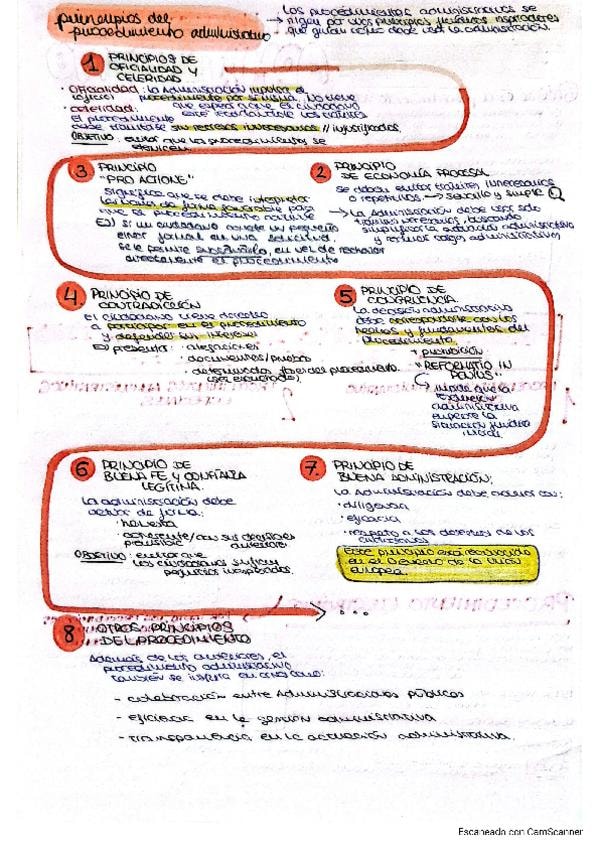 principios del
procedimiento administrativo
Los procedimientos administrativos se
→ rigen por unos principios generales inspiradores
que guían cómo debe ser la administración.
1 PRINCIPIOS DE
OFICIALIDAD Y
CELERIDAD
· Oficialidad: la Administración impulsa de
oficio el procedimiento por sí misma. No tiene
que esperar a que el ciudadano
esté recordándole los trámites
· celeridad:
el procedimiento
debe tramitarse sin retrasos innecesarios // injustificados.
OBJETIVO: evitar que los procedimientos se
3 PRINCIPIO
"PRO ACTIONE"
Significa que se debe interpretar
las normas de forma favorable para
que el procedimiento continúe
Ej) si un ciudadano comete un pequeño
error formal en una solicitud
se le permite subsanarlo, en vez de rechazar
directamente el procedimiento
2 PRINCIPIO
DE ECONOMÍA PROCESAL
Se deben evitar trámites innecesarios
o repetitivos → sencillo y simple
→ La Administración debe usar solo
trámites necesarios, buscando
simplificar la actuación administrativa
y reducir cargas administrativas
4 PRINCIPIO DE
CONTRADICCIÓN
El ciudadano tiene derecho
a participar en el procedimiento
y defender sus intereses
Ej) presentar: alegaciones
· documentos/pruebas
(ser escuchado)
5 PRINCIPIO DE
CONGRUENCIA.
La decisión administrativa
debe corresponderse con los
hechos y fundamentos del
procedimiento.
+ prohibición
"REFORMATIO IN
PEIUS"
impide que la
administrativa
empeore la
situación jurídica
inicial
6 PRINCIPIO DE
BUENA FE Y CONFIANZA
LEGÍTIMA.
La administración debe
actuar de forma:
· honesta
· coherente/con sus decisiones
previsible anteriores
OBJETIVO: evitar que
los ciudadanos sufran
perjuicios inesperados.
7. PRINCIPIO DE
BUENA ADMINISTRACIÓN:
La Administración debe actuar con:
· diligencia
· eficacia
· respeto a los derechos de los
ciudadanos
Este principio está reconocido
en el Derecho de la Unión
Europea.
...
8 OTROS PRINCIPIOS
DEL PROCEDIMIENTO
Además de los anteriores, el
procedimiento administrativo
también se inspira en otros como:
- colaboración entre Administraciones Públicas
- eficiencia en la gestión administrativa
- transparencia en la actuación administrativa.
Escaneado con CamScanner